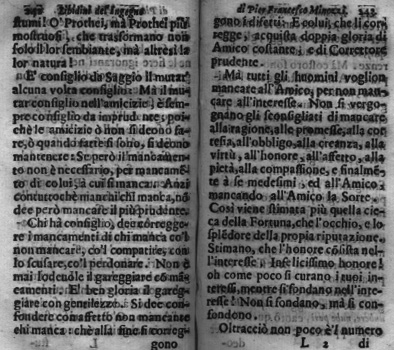 242 Libidini dell'Ingegno
stumi! O' Prothei, mà Prothei più
mostruosi, che trasformano non
solo il lor sembiante, mà altresì la
lor natura!
E' consiglio da Saggio il mutar'
alcuna volta consiglio: Mà il mu-
tar consiglio nell'amicizie, è sem-
pre consiglio da imprudente; poi-
chè le amicizie ò non si deono fa-
re, ò quando fatte si sono, si deono
mantenere: Se però il mancamen-
to non è necessario, per mancamē-
to di colui, à cui si manca. Anzi
contuttochè manchi chi manca, nō
dee però mancare il più prudente.
Chi hà consiglio, dee corregge-
re i mancamenti di chi manca col
non mancare, col compatire, con
lo scusare, col perdonare. Non è
mai lodeuole il gareggiare cō mā-
camenti. E' ben gloria il gareg-
giare con gentilezze. Si dee con-
fondere con affetto non mancante
chi manca: chè alla fine si correg-
gono
di Pier Francesco Minozzi. 243
gono i difetti. E colui, che li cor-
regge, acquista doppia gloria di
Amico costante, e di Correttore
prudente.
Mà tutti gli huomini voglion
mancare all'Amico, per non man-
care all'interesse. Non si vergo-
gnano gli sconsigliati di mancare
alla ragione, alle promesse, alla cor
tesia, all'obbligo, alla creanza, alla
virtù, all'honore, all'affetto, alla
pietà, alla compassione, e finalmē-
te à se medesimi, ed all'Amico,
mancando all'Amico la Sorte.
Così viene stimata più quella cie-
ca della Fortuna, che l'occhio, e lo
splēdore della propria riputazione.
Stimano, che l'honore cōsista nel-
l'interesse. Infelicissimo honore!
oh come poco si curano i tuoi in-
teressi, mentre si fondano nell'inte
resse! Non si fondano, mà si con-
fondono.
Oltracciò non poco è'l numero
L 2 di